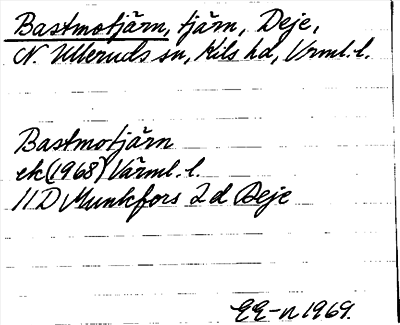 Bastmotjärn, tjärn, Deje,
N. Ulleruds sn, Kils hd, Vrml. l.
Bastmotjärn
ek (1968) Värml. l.
11D Munkfors 2d Deje
EE-n 1969.